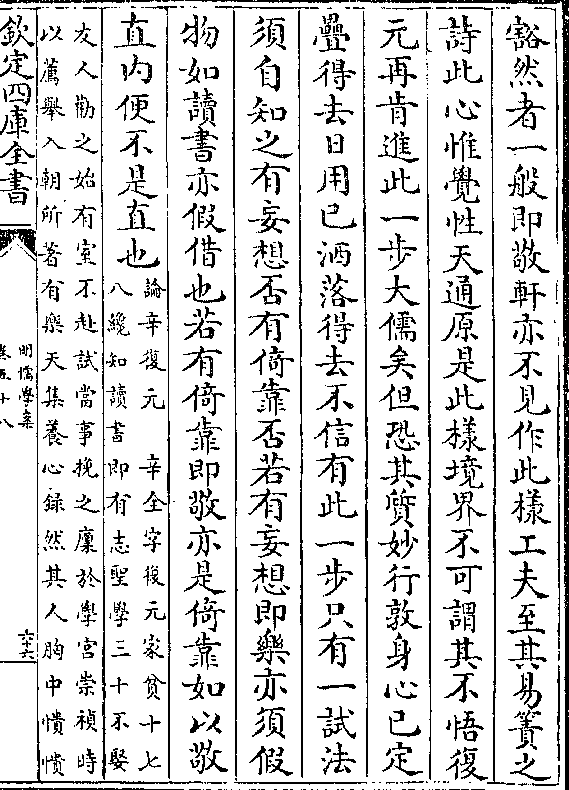 豁然者一般即敬軒亦不見作此樣工夫至其易簀之
詩此心惟覺性天通原是此樣境界不可謂其不悟復
元再肯進此一步大儒矣但恐其質妙行敦身心已定
疊得去日用已洒落得去不信有此一步只有一試法
須自知之有妄想否有倚靠否若有妄想即樂亦須假
物如讀書亦假借也若有倚靠即敬亦是倚靠如以敬
直内便不是直也
論辛復元　辛全字復元家貧十七
八纔知讀書即有志聖學三十不娶
友人勸之始有室不赴試當事挽之廩於學宮崇禎時
以薦舉入朝所著有樂天集養心録然其人胸中憒憒
欽定四庫全書
明儒學案
卷五十八
六十六